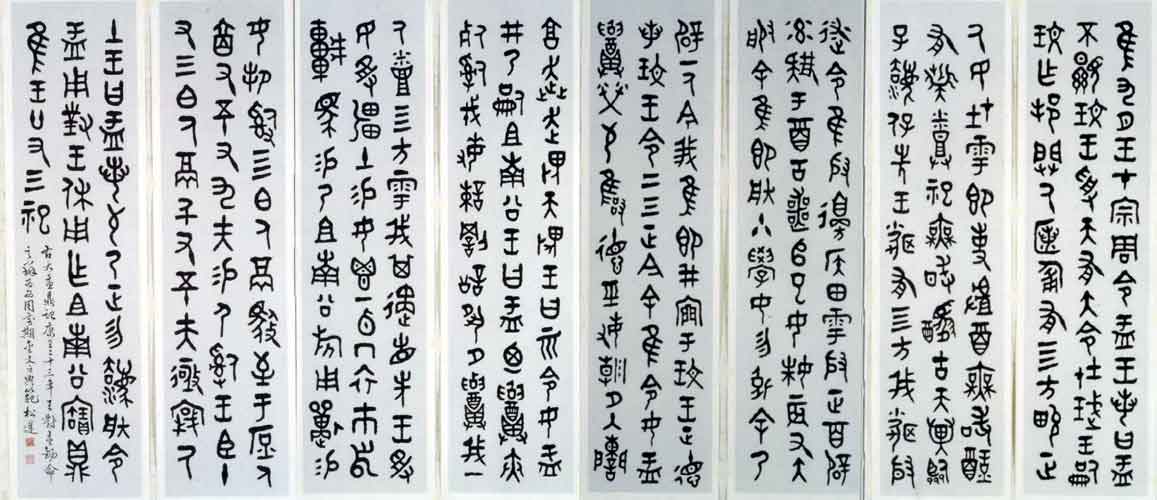 隹九月王才宗周令盂王若曰盂
不顯玟王受天有大令在珷王嗣
玟乍邦闢氒匿匍有四方畯正
氒民在雩御事酒無敢酖
有柴烝祀無敢古天異臨
子灋保先王有四方我聞殷
述令隹殷邊侯田雩殷正百辟
率肄于酉古喪師已女妹辰又大
服余隹即朕小學女勿余乃
辟一人今我隹即井稟于玟王正德
若玟王令二三正今余隹令女盂
召榮敬雝德巠敏朝夕入諫
享奔走畏天畏王曰而令女盂
井乃嗣且南公王曰盂乃召夾
死司戎敏諫罰訟夙夕召我一
人烝四方雩我其遹省先王受
民受疆土易女鬯一卣冂衣巿舄
車馬易乃且南公旂用狩易
女邦司四白人鬲自馭至于庶人
六百又五十又九夫易尸司王臣十
又三白人鬲千又五十夫氒
土王曰盂若敬乃正勿灋朕令
盂用對王休用乍且南公寶鼎
隹王廿又三祀
右大盂鼎記康王二十三年王對盂命
之辭西周早期金文之典範 松